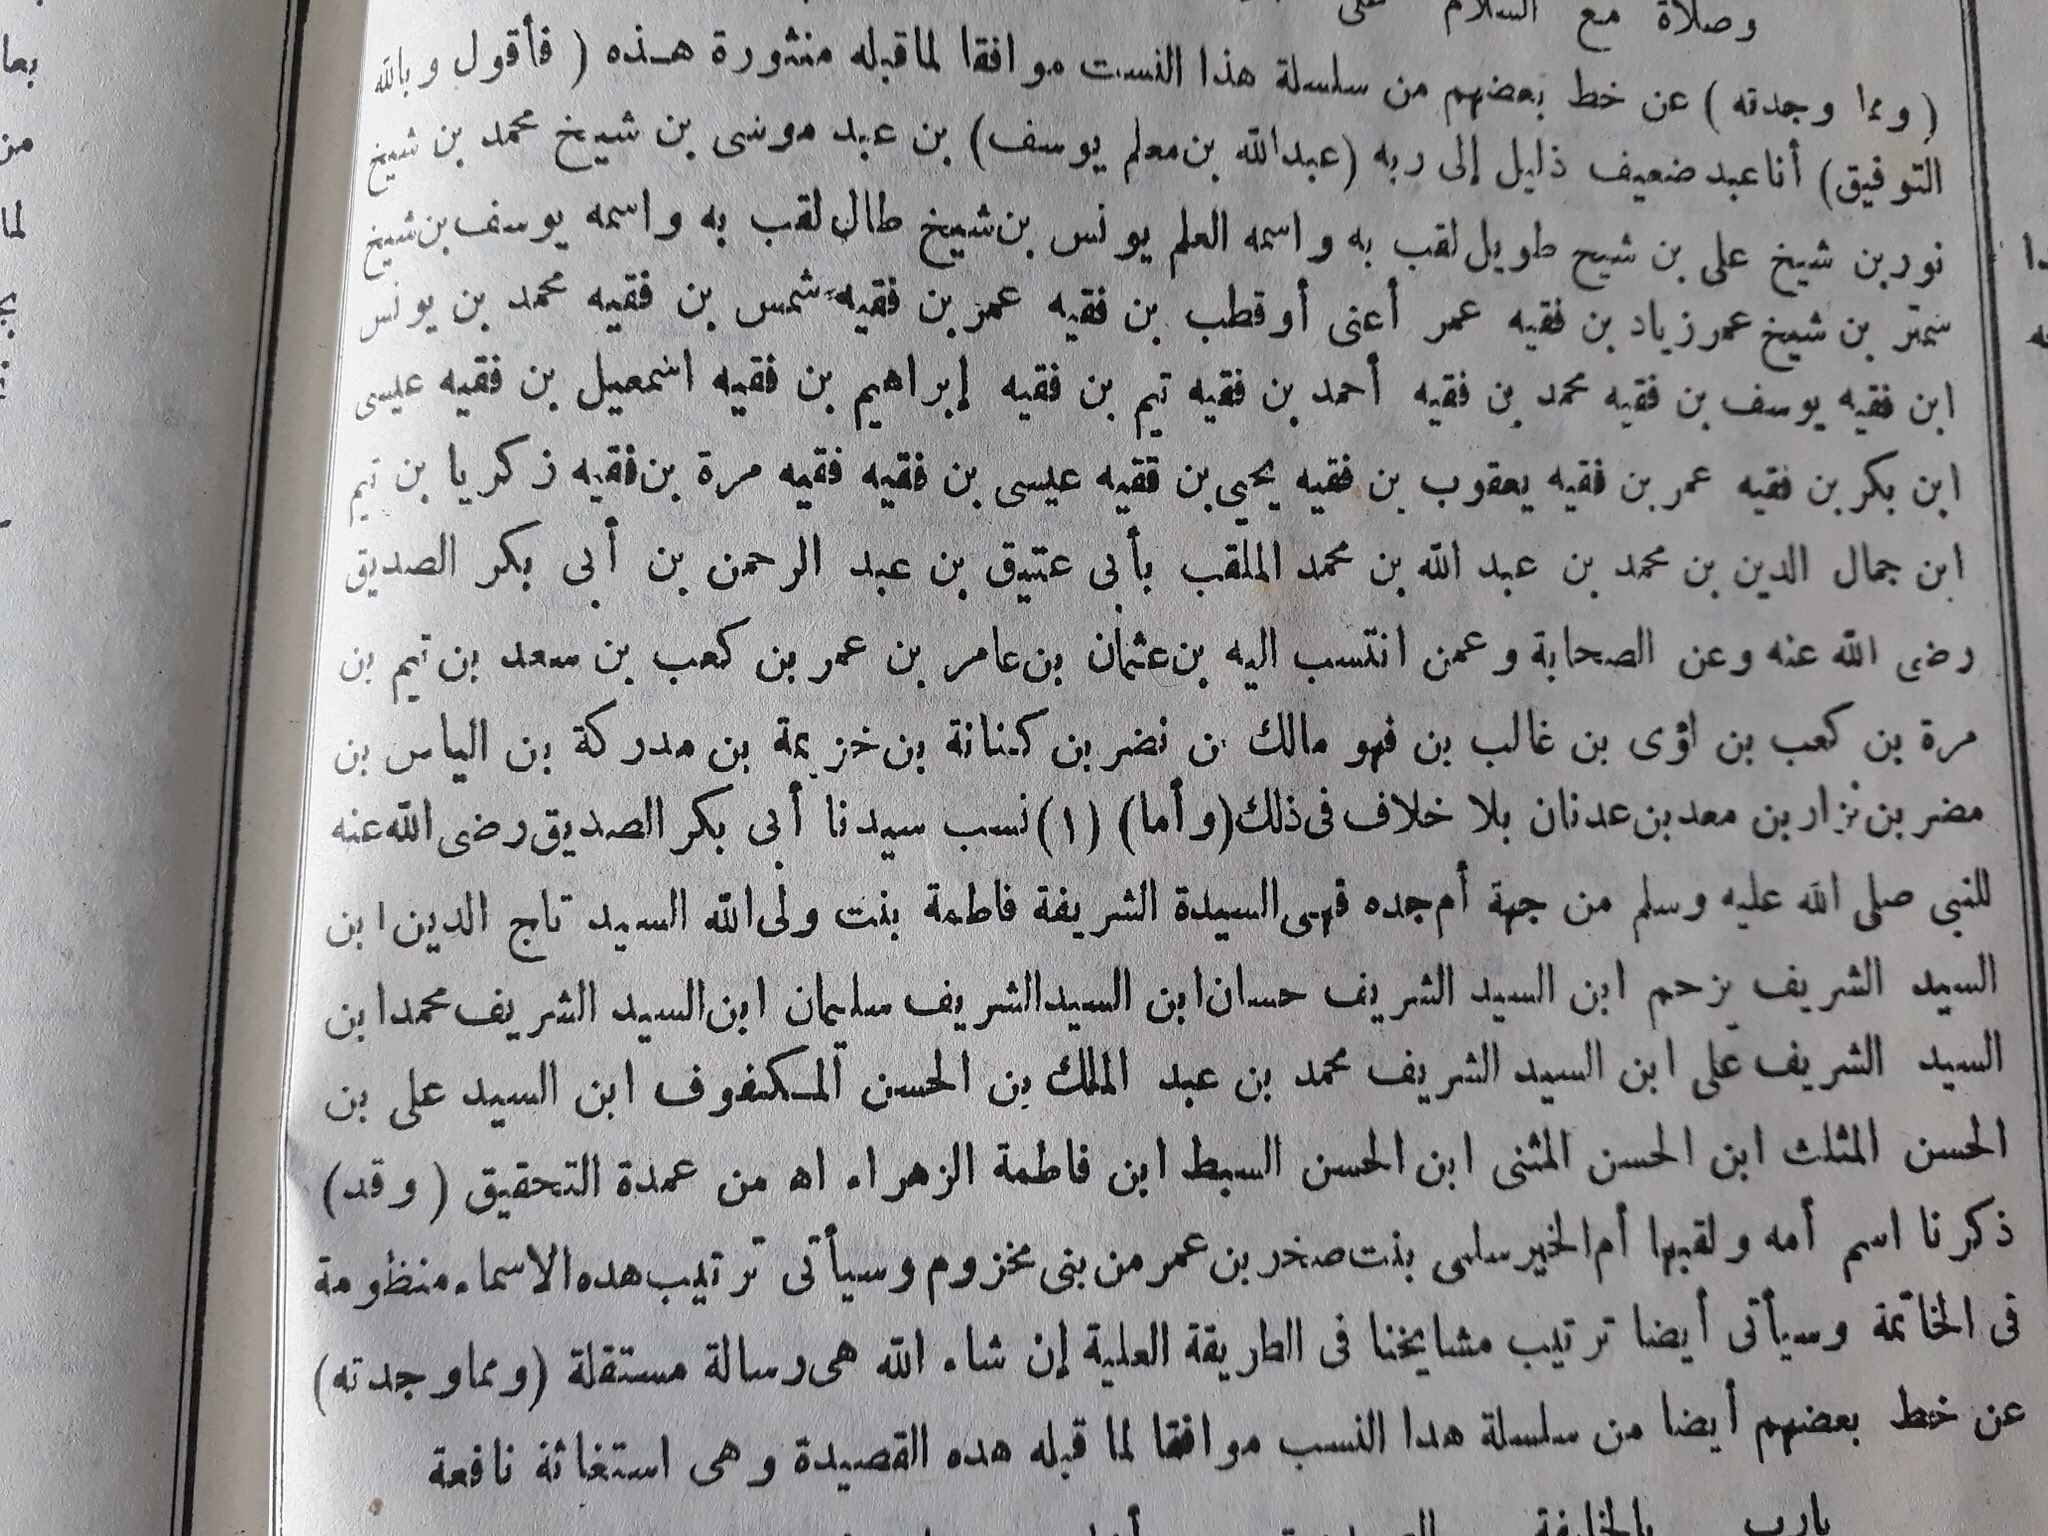 وصلاة مع السلام على
(ومما وجدته) عن خط بعضهم من سلسلة هذا النسب موافقا لما قبله منثورة هذه (فأقول وبالله
التوفيق) أنا عبد ضعيف ذليل إلى ربه (عبدالله بن معلم يوسف) بن عبد موسى بن شيخ محمد بن شيخ
نور بن شيخ على بن شيح طويل لقب به واسمه العلم يونس بن شيخ طال لقب به واسمه يوسف بن شيخ
بن شيخ عمر زياد بن فقيه عمر أعنى أوقطب بن فقيه عمر بن فقيه شمس بن فقيه محمد بن يونس
ابن فقيه يوسف بن فقيه محمد بن فقيه أحمد بن فقيه تيم بن فقيه إبراهيم بن فقيه اسمعيل بن فقيه عيسى
ابن بكر بن فقيه عمر بن فقيه يعقوب بن فقيه يحيى بن فقيه عيسى بن فقيه فقيه مرة بن فقيه زكريا بن تيم
ابن جمال الدين بن محمد بن عبد الله بن محمد الملقب بأبى عتيق بن عبد الرحمن بن أبى بكر الصديق
رضى الله عنه وعن الصحابة وعمن انتسب اليه بن عثمان بن عامر بن عمر بن كعب بن سعد بن تيم بن
مرة بن كعب بن لؤى بن غالب بن فهو مالك بن نضر بن كنانة بن خزيمة بن مدركة بن الياس بن
مضر بن نزار بن معد بن عدنان بلا خلاف فى ذلك (وأما) (١) نسب سيدنا أبى بكر الصديق رضى الله عنه
للنبى صلى الله عليه وسلم من جهة أم جده فهى السيدة الشريفة فاطمة بنت ولى الله السيد تاج الدين ابن
السيد الشريف يزحم ابن السيد الشريف حسان ابن السيد الشريف سليمان ابن السيد الشريف محمد ابن
السيد الشريف على ابن السيد الشريف محمد بن عبد الملك بن الحسن المكفوف ابن السيد على بن
الحسن المثلث ابن الحسن المثنى ابن الحسن السبط ابن فاطمة الزهراء اه من عمدة التحقيق (وقد)
ذكرنا اسم أمه ولقبها أم الخير سلمى بنت صخر بن عمر من بنى مخزوم وسيأتى ترتيب هده الاسماء منظومة
فى الخاتمة وسيأتى أيضا ترتيب مشايخنا فى الطريقة العلية إن شاء الله هى رسالة مستقلة (ومما وجدته)
عن خط بعضهم أيضا من سلسلة هدا النسب موافقا لما قبله هده القصيدة وهى استغاثة نافعة
يارب بالخليفة